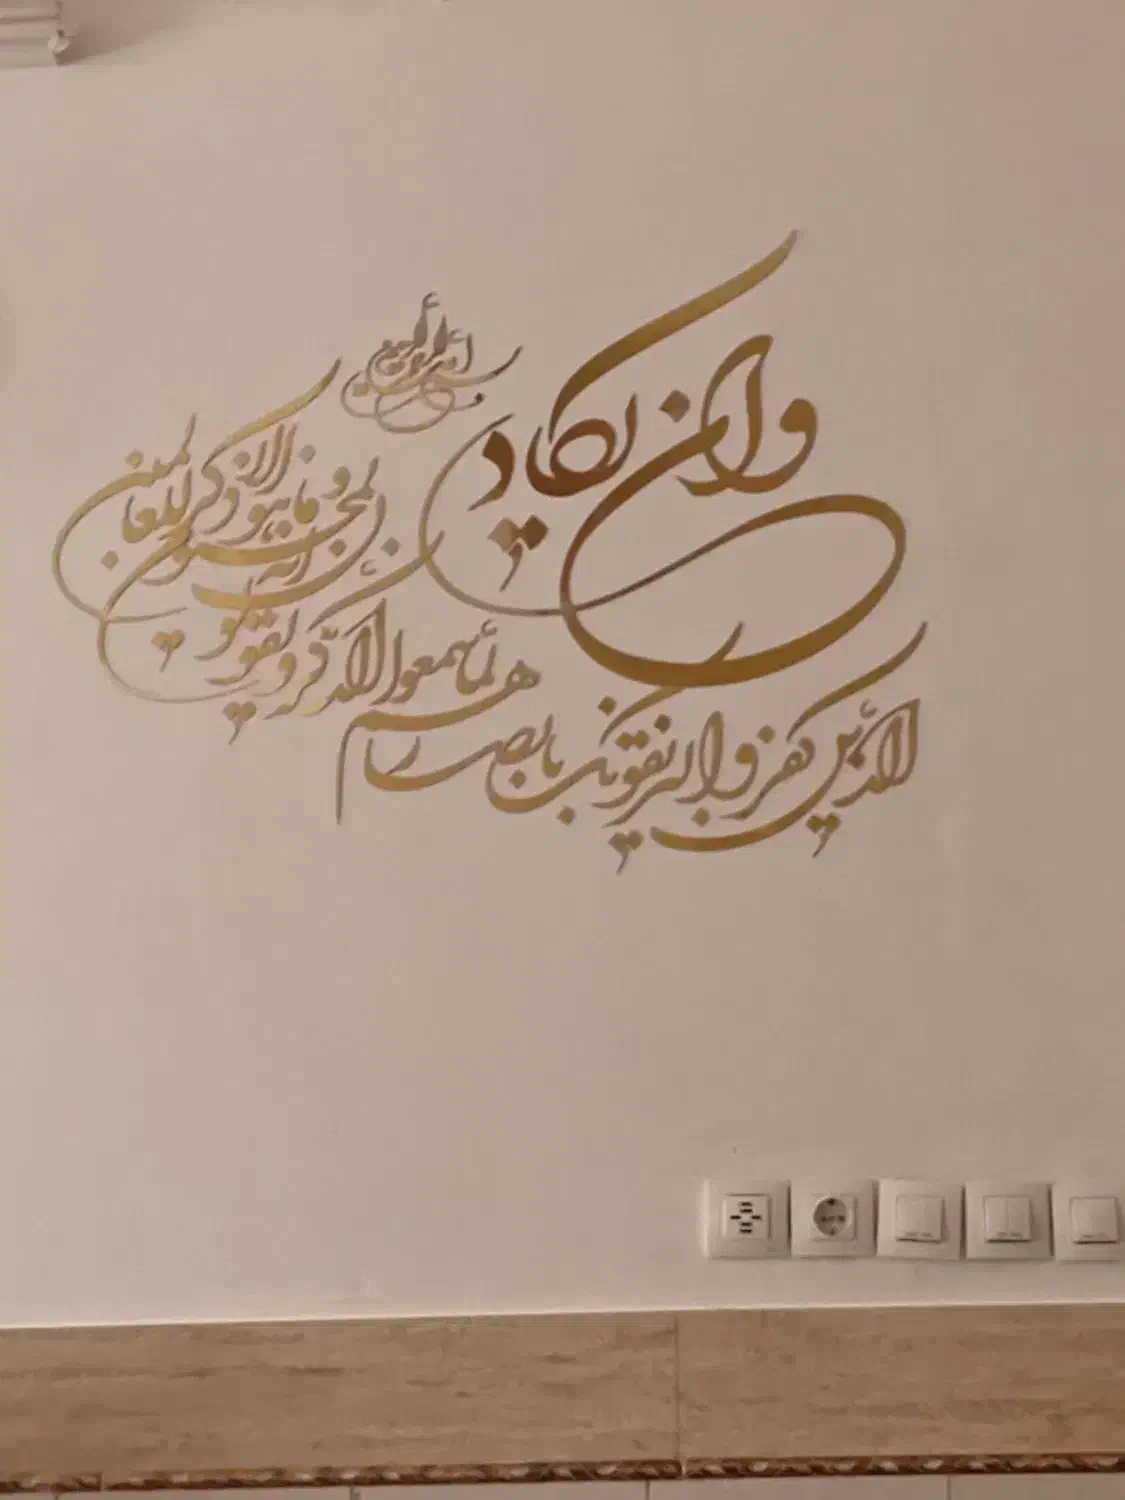 وان یکاد
الذین کفروا لیزلقونک بابصارهم
لما سمعوا الذکر و یقولون
انه لمجنون
و ما هو الا ذکر للعالمین